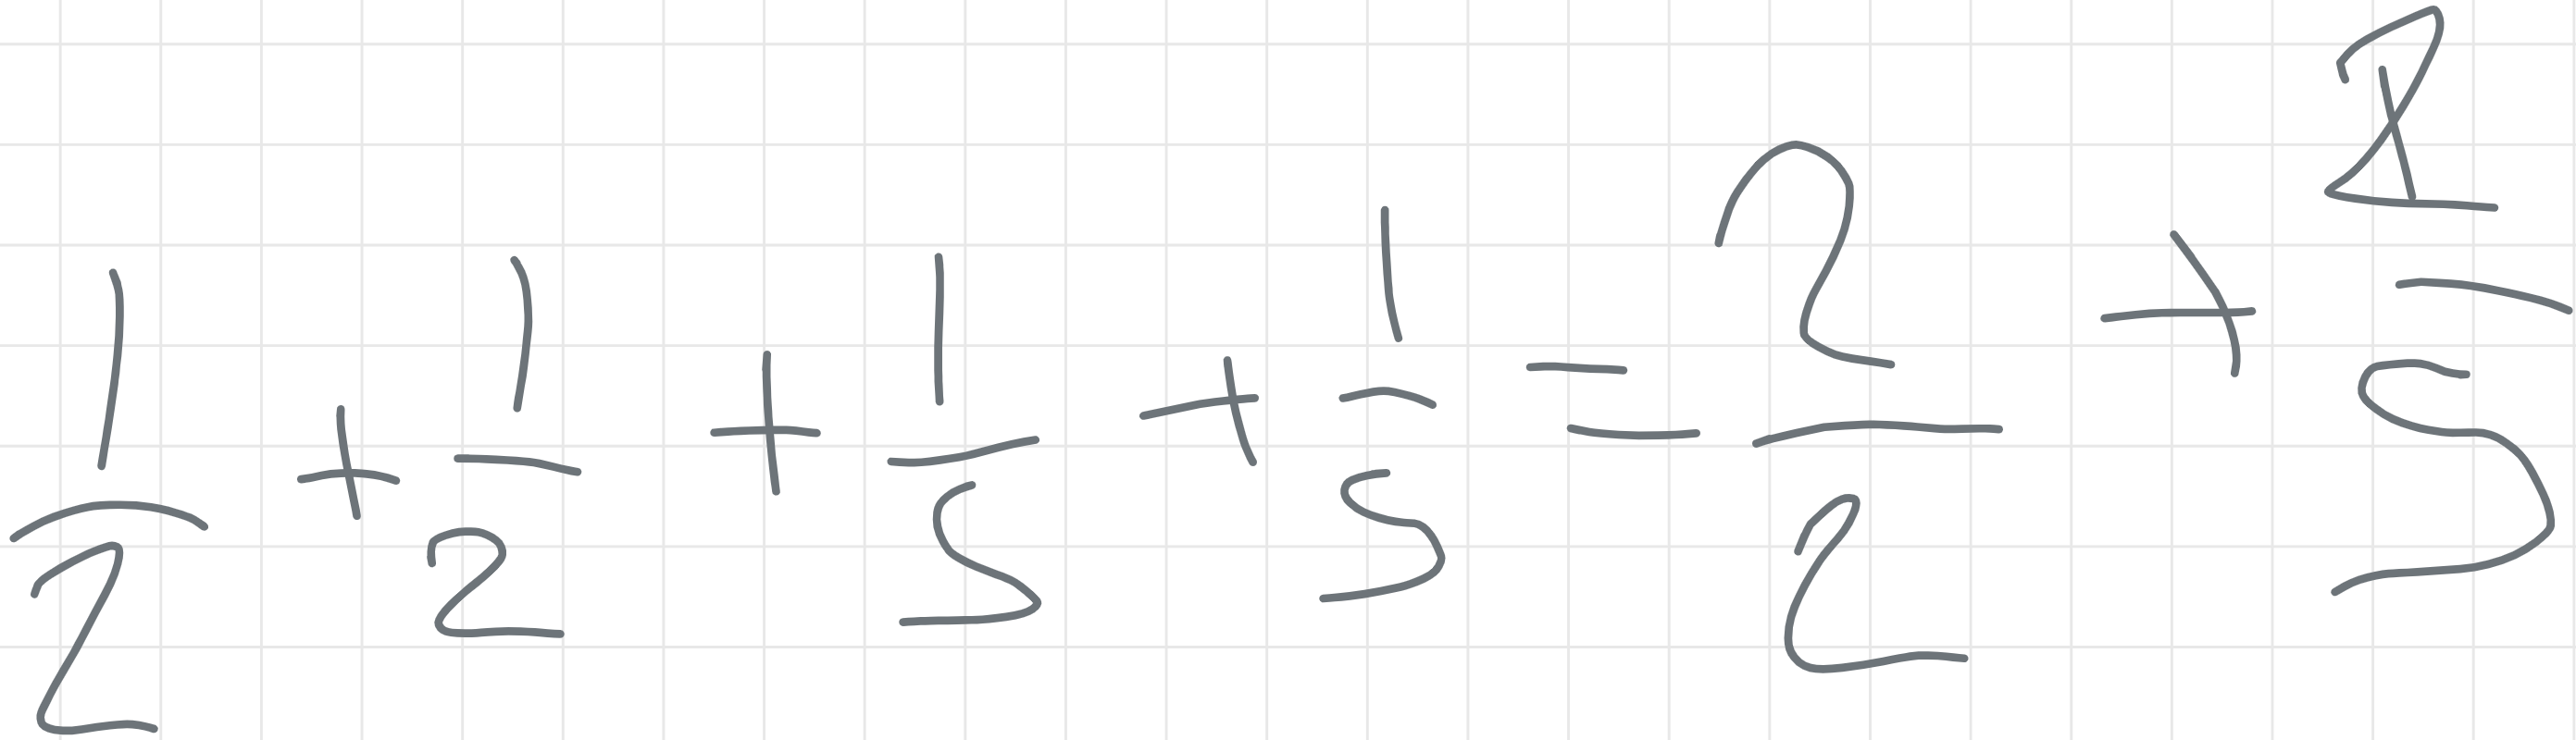 1/2 + 1/2 + 1/5 + 1/5 = 2/2 + 2/5